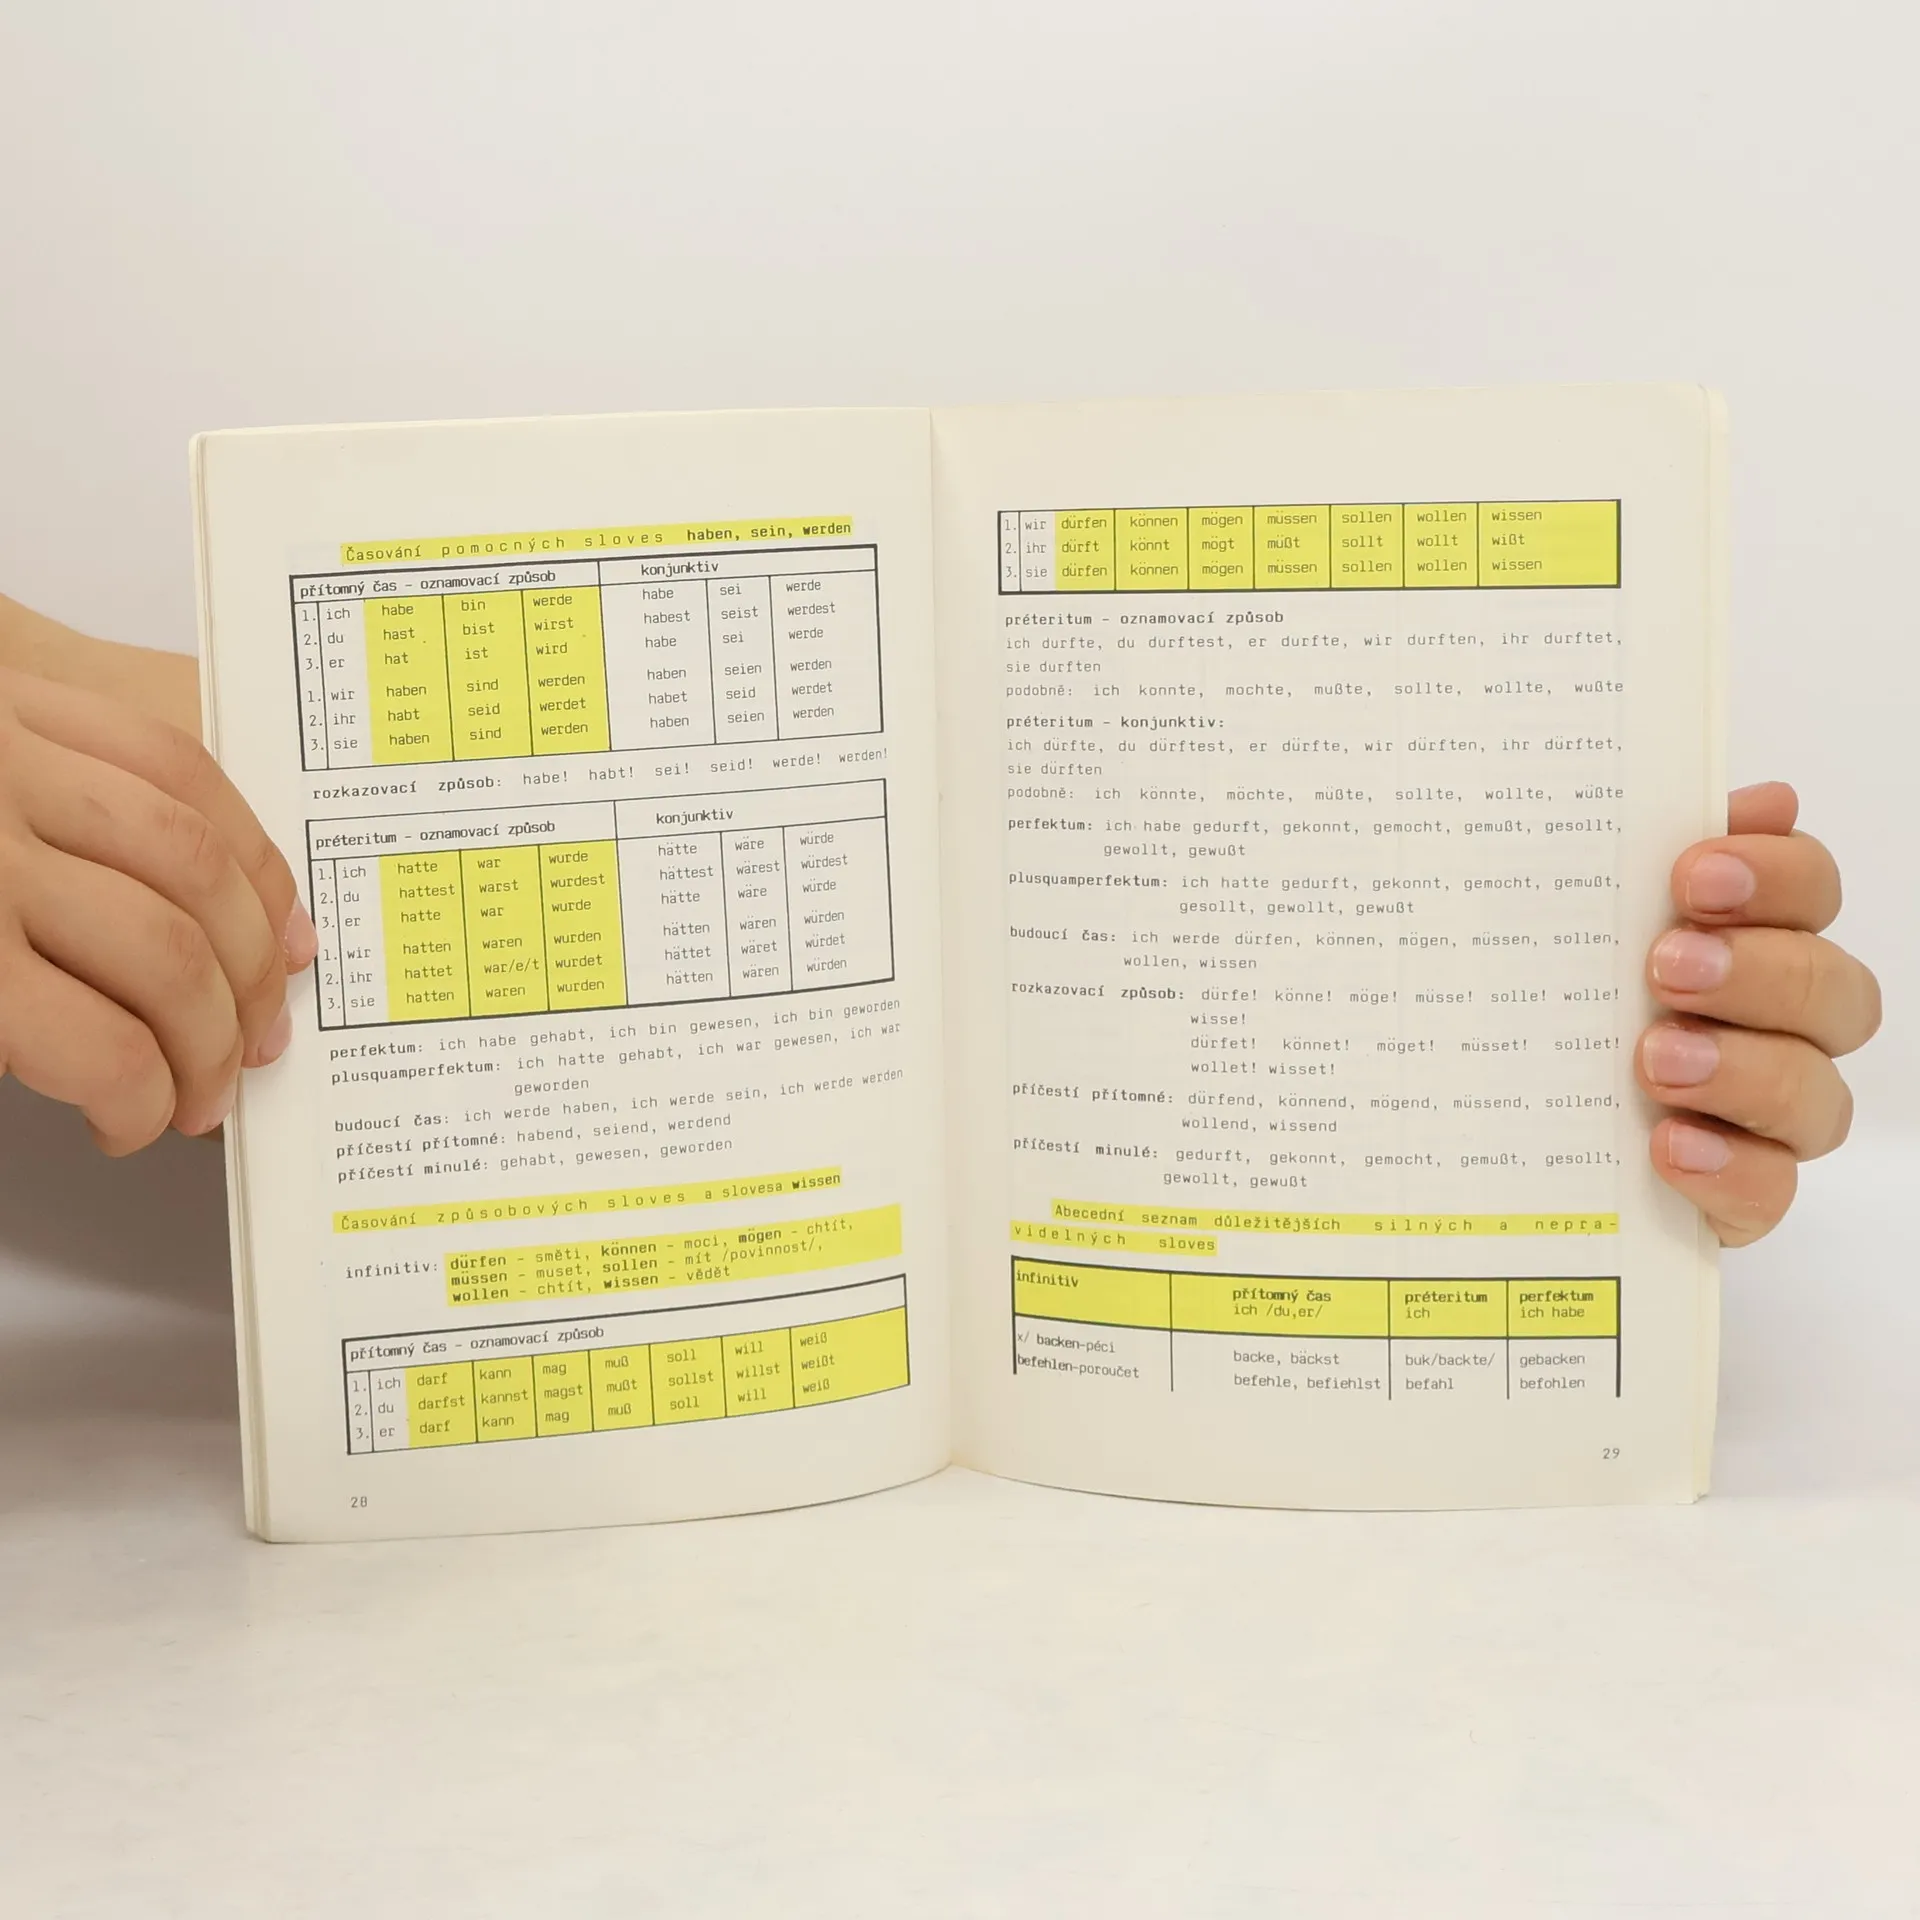 Časování pomocných sloves haben, sein, werden
přítomný čas - oznamovací způsob konjunktiv
1. ich habe bin werde habe sei werde
2. du hast bist wirst habest seist werdest
3. er hat ist wird habe sei werde
1. wir haben sind werden haben seien werden
2. ihr habt seid werdet habet seid werdet
3. sie haben sind werden haben seien werden
rozkazovací způsob: habe! habt! sei! seid! werde! werden!
préteritum - oznamovací způsob konjunktiv
1. ich hatte war wurde hätte wäre würde
2. du hattest warst wurdest hättest wärest würdest
3. er hatte war wurde hätte wäre würde
1. wir hatten waren wurden hätten wären würden
2. ihr hattet war/e/t wurdet hättet wäret würdet
3. sie hatten waren wurden hätten wären würden
perfektum: ich habe gehabt, ich bin gewesen, ich bin geworden
plusquamperfektum: ich hatte gehabt, ich war gewesen, ich war
geworden
budoucí čas: ich werde haben, ich werde sein, ich werde werden
příčestí přítomné: habend, seiend, werdend
příčestí minulé: gehabt, gewesen, geworden
Časování způsobových sloves a slovesa wissen
infinitiv: dürfen - směti, können - moci, mögen - chtít,
müssen - muset, sollen - mít /povinnost/,
wollen - chtít, wissen - vědět
přítomný čas - oznamovací způsob
1. ich darf kann mag muß soll will weiß
2. du darfst kannst magst mußt sollst willst weißt
3. er darf kann mag muß soll will weiß
28
1. wir dürfen können mögen müssen sollen wollen wissen
2. ihr dürft könnt mögt müßt sollt wollt wißt
3. sie dürfen können mögen müssen sollen wollen wissen
préteritum - oznamovací způsob
ich durfte, du durftest, er durfte, wir durften, ihr durftet,
sie durften
podobně: ich konnte, mochte, mußte, sollte, wollte, wußte
préteritum - konjunktiv:
ich dürfte, du dürftest, er dürfte, wir dürften, ihr dürftet,
sie dürften
podobně: ich könnte, möchte, müßte, sollte, wollte, wüßte
perfektum: ich habe gedurft, gekonnt, gemocht, gemußt, gesollt,
gewollt, gewußt
plusquamperfektum: ich hatte gedurft, gekonnt, gemocht, gemußt,
gesollt, gewollt, gewußt
budoucí čas: ich werde dürfen, können, mögen, müssen, sollen,
wollen, wissen
rozkazovací způsob: dürfe! könne! möge! müsse! solle! wolle!
wisse!
dürfet! könnet! möget! müsset! sollet!
wollet! wisset!
příčestí přítomné: dürfend, könnend, mögend, müssend, sollend,
wollend, wissend
příčestí minulé: gedurft, gekonnt, gemocht, gemußt, gesollt,
gewollt, gewußt
Abecední seznam důležitějších silných a nepra-
videlných sloves
infinitiv přítomný čas préteritum perfektum
ich /du,er/ ich ich habe
x/ backen-péci backe, bäckst buk/backte/ gebacken
befehlen-poroučet befehle, befiehlst befahl befohlen
29